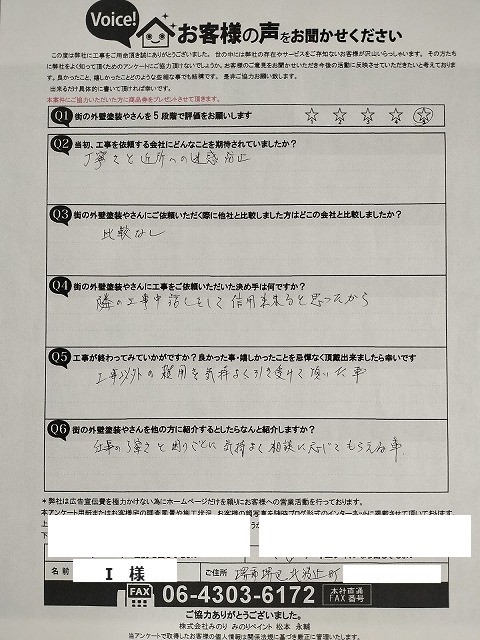 Voice!
お客様の声をお聞かせください
この度は弊社に工事をご用命頂き誠にありがとうございました。世の中には弊社の存在やサービスをご存知ないお客様が沢山いらっしゃいます。その方たち
に弊社をよく知って頂くためのアンケートにご協力頂けないでしょうか。お客様のご意見をお聞かせいただき今後の活動に反映させていただきたいと考えておりま
す。良かったこと、嬉しかったことどのような些細な事でも結構です。是非ご協力お願い致します。
出来るだけ具体的に書いて頂ければ幸いです。
本案件にご協力いただいた方に商品券をプレゼントさせて頂きます。
Q1 街の外壁塗装やさんを5段階で評価をお願いします
Q2 当初、工事を依頼する会社にどんなことを期待されていましたか?
丁寧さと近所への迷惑防止
Q3 街の外壁塗装やさんにご依頼いただく際に他社と比較しました方はどこの会社と比較しましたか?
比較なし
Q4 街の外壁塗装やさんに工事をご依頼いただいた決め手は何ですか?
隣の工事中話しをして信用出来ると思ったから
Q5 工事が終わってみていかがですか?良かった事・嬉しかったことを忌憚なく頂戴出来ましたら幸いです
工事以外の費用を気持よく引き受けて頂いた事
Q6 街の外壁塗装やさんを他の方に紹介するとしたらなんと紹介しますか?
仕事の丁寧さと困りごとに気持よく相談に応じてもらえる事
*弊社は広告宣伝費を極力かけない為にホームページだけを頼りにお客様への営業活動を行っております。
名前
I 様
ご住所
堺市堺区北波止町
FAX
06-4303-6172
本社直通
FAX番号
ご協力ありがとうございました。
株式会社みのり みのりペイント 松本 永輔
当アンケートで取得したお客様の個人情報は関係法規に基づき厳正に管理いたします。